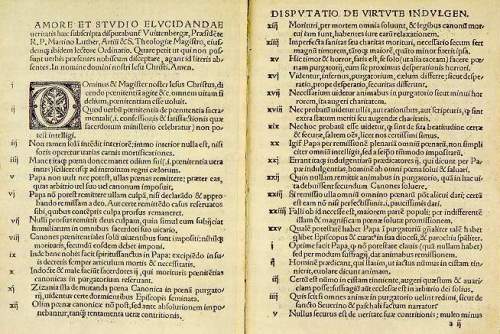 AMORE ET STVDIO ELVCIDANDAE
ueritatis hæc subscripta disputabunť Vuittenbergæ, Præsidête
R. P. Martino Luther, Artiũ & S. Theologiæ Magistro, eius-
demq́ ibidem lectore Ordinario. Quare petit ut qui non pos-
sunt uerbis præsentes nobiscum disceptare, agant id literis ab-
sentes. In nomine domini nostri Iesu Christi. Amen.
i Ominus & Magister noster Iesus Christus, di-
cendo pœnitentiã agite &c. omnem uitam fi-
delium, pœnitentiam esse uoluit.
ij Quod uerbũ pœnitentia de pœnitentia sacra-
mentali (.i. confessionis & satisfactionis quæ
sacerdotum ministerio celebratur) non po-
test intelligi.
iij Non tamen solã intēdit interiorē: immo interior nulla est, nisi
foris operetur uarias carnis mortificationes.
iiij Manet itaq́ pœna donec manet odium sui (.i. pœnitentia uera
intus) scilicet usq́ ad introitum regni cælorum.
v Papa non uult nec potest, ullas pœnas remittere: præter eas,
quas arbitrio uel suo uel canonum imposuit.
vi Papa nō potest remittere ullam culpã, nisi declarãdo & appro-
bando remissam a deo. Aut certe remittēdo casus reseruatos
sibi, quibus contēptis culpa prorsus remaneret.
vij Nulli prorsus remittit deus culpam, quin simul eum subijciat
humiliatum in omnibus sacerdoti suo uicario.
viij Canones pœnitentiales solũ uiuentibus sunt impositi: nihilq́
morituris, secundũ eosdem debet imponi.
ix Inde bene nobis facit spiritussanctus in Papa: excipiēdo in su-
is decretis semper articulum mortis & necessitatis.
x Indocte & male faciunt sacerdotes ij, qui morituris pœnitētias
canonicas in purgatorium reseruant.
xi Zizania illa de mutanda pœna Canonica in pœnã purgato-
rij, uidentur certe dormientibus Episcopis seminata.
xij Olim pœnæ canonicæ nō post, sed ante absolutionem impo-
nebantur, tanq́ tentamenta ueræ contritionis.
DISPVTATIO DE VIRTVTE INDVLGEN.
xiij Morituri, per mortem omnia soluunt, & legibus canonũ mor-
tui iam sunt, habentes iure earū relaxationem.
xiiij Imperfecta sanitas seu charitas morituri, necessario secum fert
magnũ timorem, tantoq́ maiorē, quãto minor fuerit ipsa.
xv Hic timor & horror, satis est, se solo (ut alia taceam) facere pœ-
nam purgatorij, cum sit proximus desperationis horrori.
xvi Videntur, infernus, purgatorium, cælum differre; sicut despe-
ratio, prope desperatio, securitas differunt.
xvij Necessarium uidetur animabus in purgatorio sicut minui hor-
rorem, ita augeri charitatem.
xviij Nec probatũ uidetur ullis, aut rationibus, aut scripturis, q́ sint
extra statum meriti seu augendæ charitatis.
xix Nec hoc probatũ esse uidetur, q́ sint de sua beatitudine certæ
& securæ, saltem oēs, licet nos certissimi simus.
xx Igiť Papa per remissionē plenariã omniũ pœnarũ, non simpli-
citer omniũ intelligit, sed a seipso tantũmodo impositarũ.
xxi Errant itaq́ indulgentiarũ prædicatores ij, qui dicunt per Pa-
pæ indulgentias, hominē ab omni pœna solui & saluari.
xxij Quin nullam remittit animabus in purgatorio, quã in hac ui-
ta debuissent secundum Canones soluere.
xxiij Si remissio ulla omniũ omnino pœnarũ pōt alicui dari; certũ
est eam nō nisi perfectissimis .i. paucissimis dari.
xxiiij Falli ob id necesse est, maiorem partē populi: per indifferentē
illam & magnificam pœnæ solutæ promissionem.
xxv Qualē potestatē habet Papa ĩ purgatoriũ gñaliter talē habet
q́libet Episcopus & curatus in sua diœcesi, & parochia sp̄aliter.
i Optime facit Papa, q́ nō potestate clauis (quã nullam habet)
sed per modum suffragij, dat animabus remissionem.
ij Hominē prædicant, qui statim, ut iactus nũmus in cistam tin-
nierit, euolare dicunt animam.
iij Certũ est nũmo in cistam tinniente, augeri quæstum & auari-
tiam posse: suffragiũ aũt ecclesiæ est in arbitrio dei solius.
iiij Quis scit si omnes animæ in purgatorio uelint redimi, sicut de
sancto Seuerino & paschali factum narratur?
v Nullus securus est de ueritate suæ contritionis; multominus
a ij